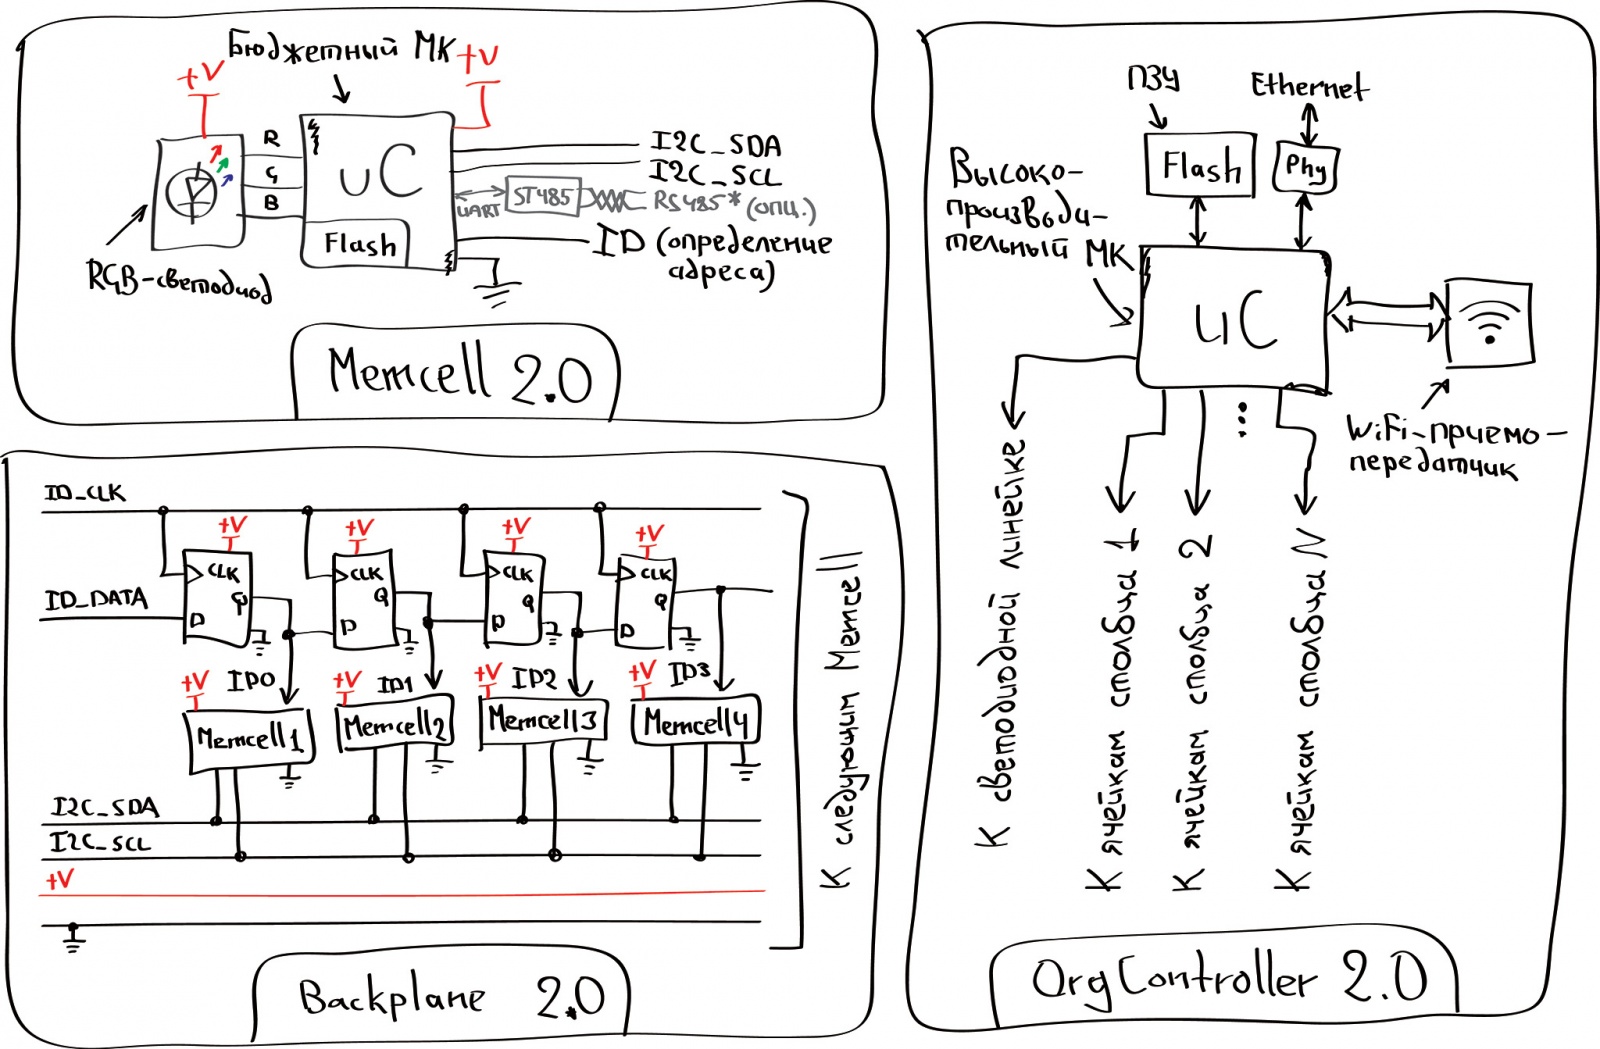 Бюджетный МК
+V
+V
R
G
B
uC
Flash
I2C_SDA
I2C_SCL
UART
ST485
RS485* (опц.)
ID (определение
адреса)
RGB-светодиод
Memcell 2.0
ID_CLK
+V
+V
+V
+V
CLK
CLK
CLK
CLK
Q
Q
Q
Q
ID_DATA
D
D
D
D
+V
ID0
+V
ID1
+V
ID2
+V
ID3
Memcell 1
Memcell 2
Memcell 3
Memcell 4
I2C_SDA
I2C_SCL
+V
К следующим Memcell
Backplane 2.0
ПЗУ
Ethernet
Flash
Phy
Высоко-
производи-
тельный МК
uC
WiFi-приемо-
передатчик
...
К светодиодной линейке
К ячейкам столбца 1
К ячейкам столбца 2
К ячейкам столбца N
OrgController 2.0